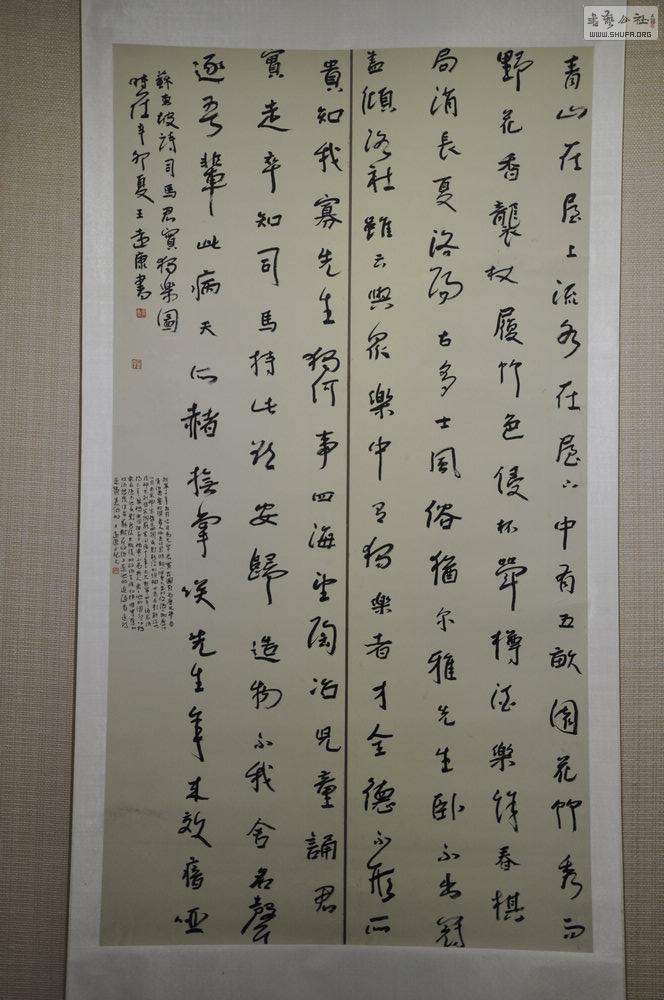 青山在屋上流水在屋下中有五畝園花竹秀而
野花香襲杖履竹色侵杯斝樽酒樂餘春棋
局消長夏洛陽古多士風俗猶尔雅先生臥不出冠
蓋傾洛社雖云與眾樂中有獨樂者才全德不形所
貴知我寡先生獨何事四海望陶冶兒童誦君
實走卒知司馬持此欲安歸造物不我舍名聲
逐吾輩此病天所赭撫掌笑先生年来效瘖啞
蘇東坡詩司馬君實獨樂園
時在辛卯夏王
書藝公社
WWW.SHUFA.ORG